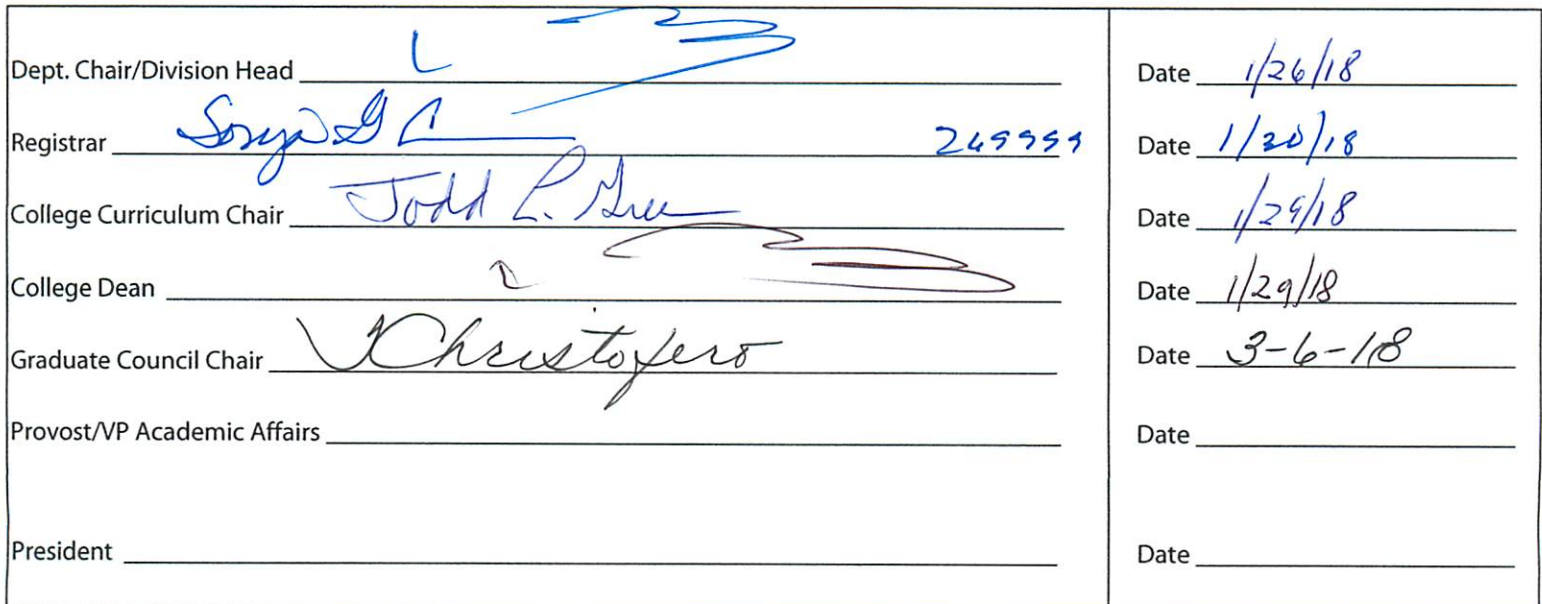 Dept. Chair/Division Head Date 1/26/18
Registrar 269999 Date 1/30/18
College Curriculum Chair Todd L. Date 1/29/18
College Dean Date 1/29/18
Graduate Council Chair Christofero Date 3-6-18
Provost/VP Academic Affairs Date
President Date